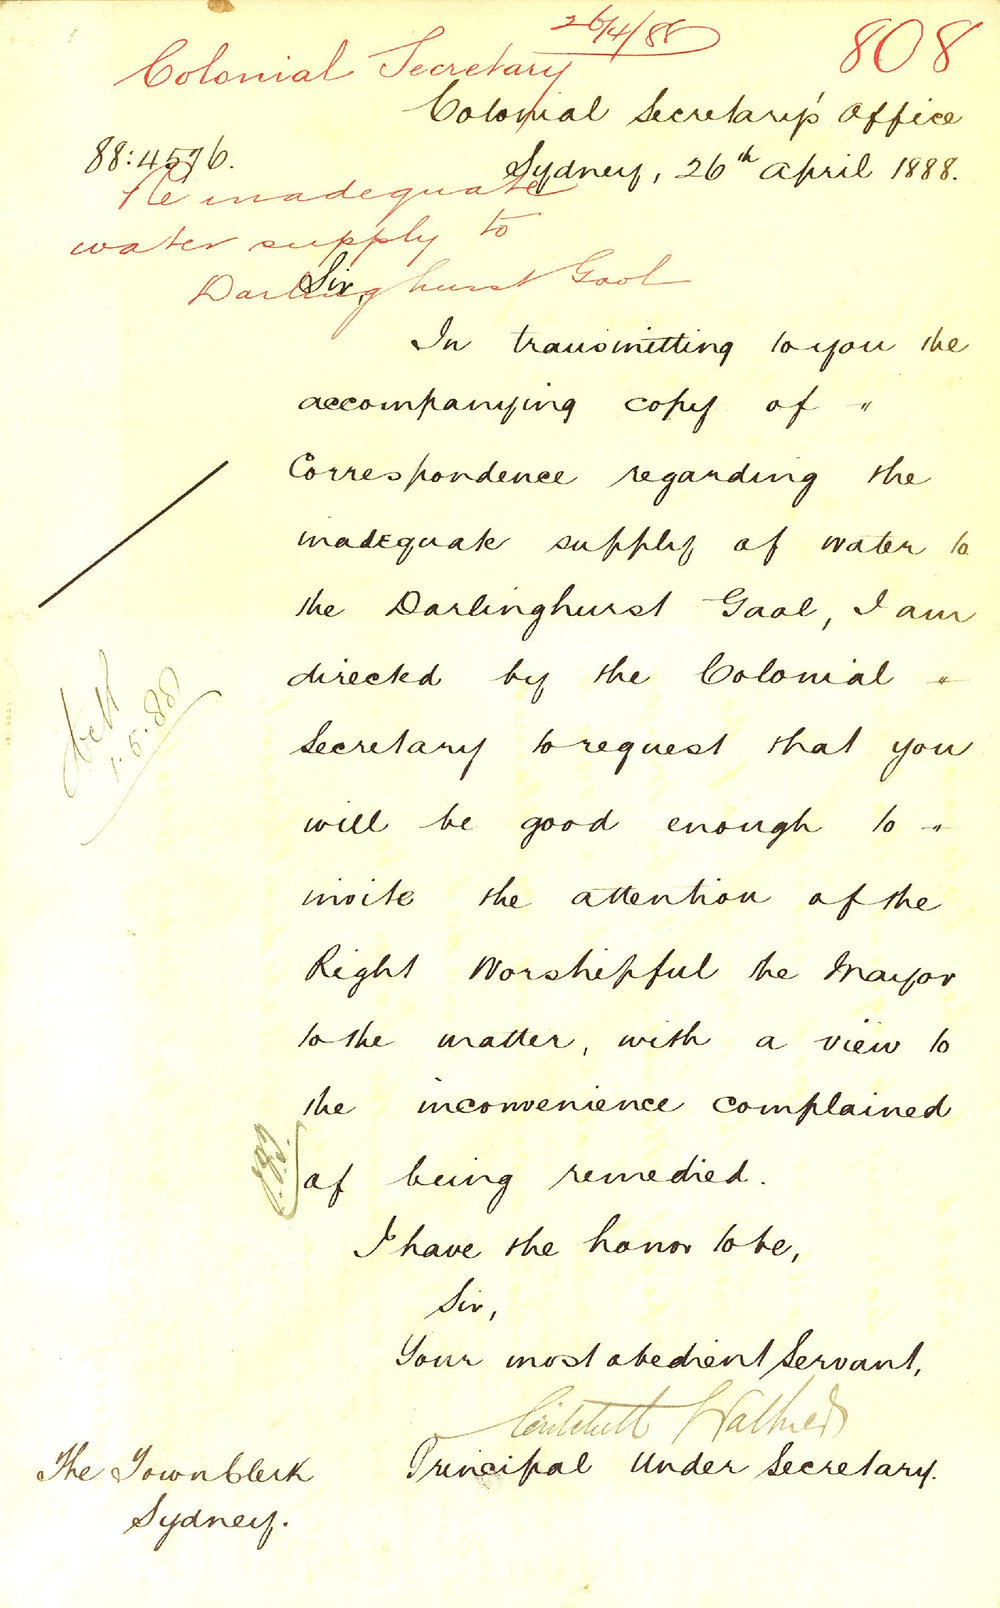 26/4/88
808
Colonial Secretary
Colonial Secretary's Office
88:4576.
Sydney, 26th April 1888.
Re inadequate
water supply to
Darlinghurst Gaol
Sir,
In transmitting to you the
accompanying copy of "
Correspondence regarding the
inadequate supply of water to
the Darlinghurst Gaol, I am
directed by the Colonial "
Secretary to request that you
will be good enough to "
invite the attention of the
Right Worshipful the Mayor
to the matter, with a view to
the inconvenience complained
of being remedied.
I have the honor to be,
Sir,
Your most obedient Servant,
Critchett Walker
Principal Under Secretary.
The Town Clerk
Sydney.
1.5.88